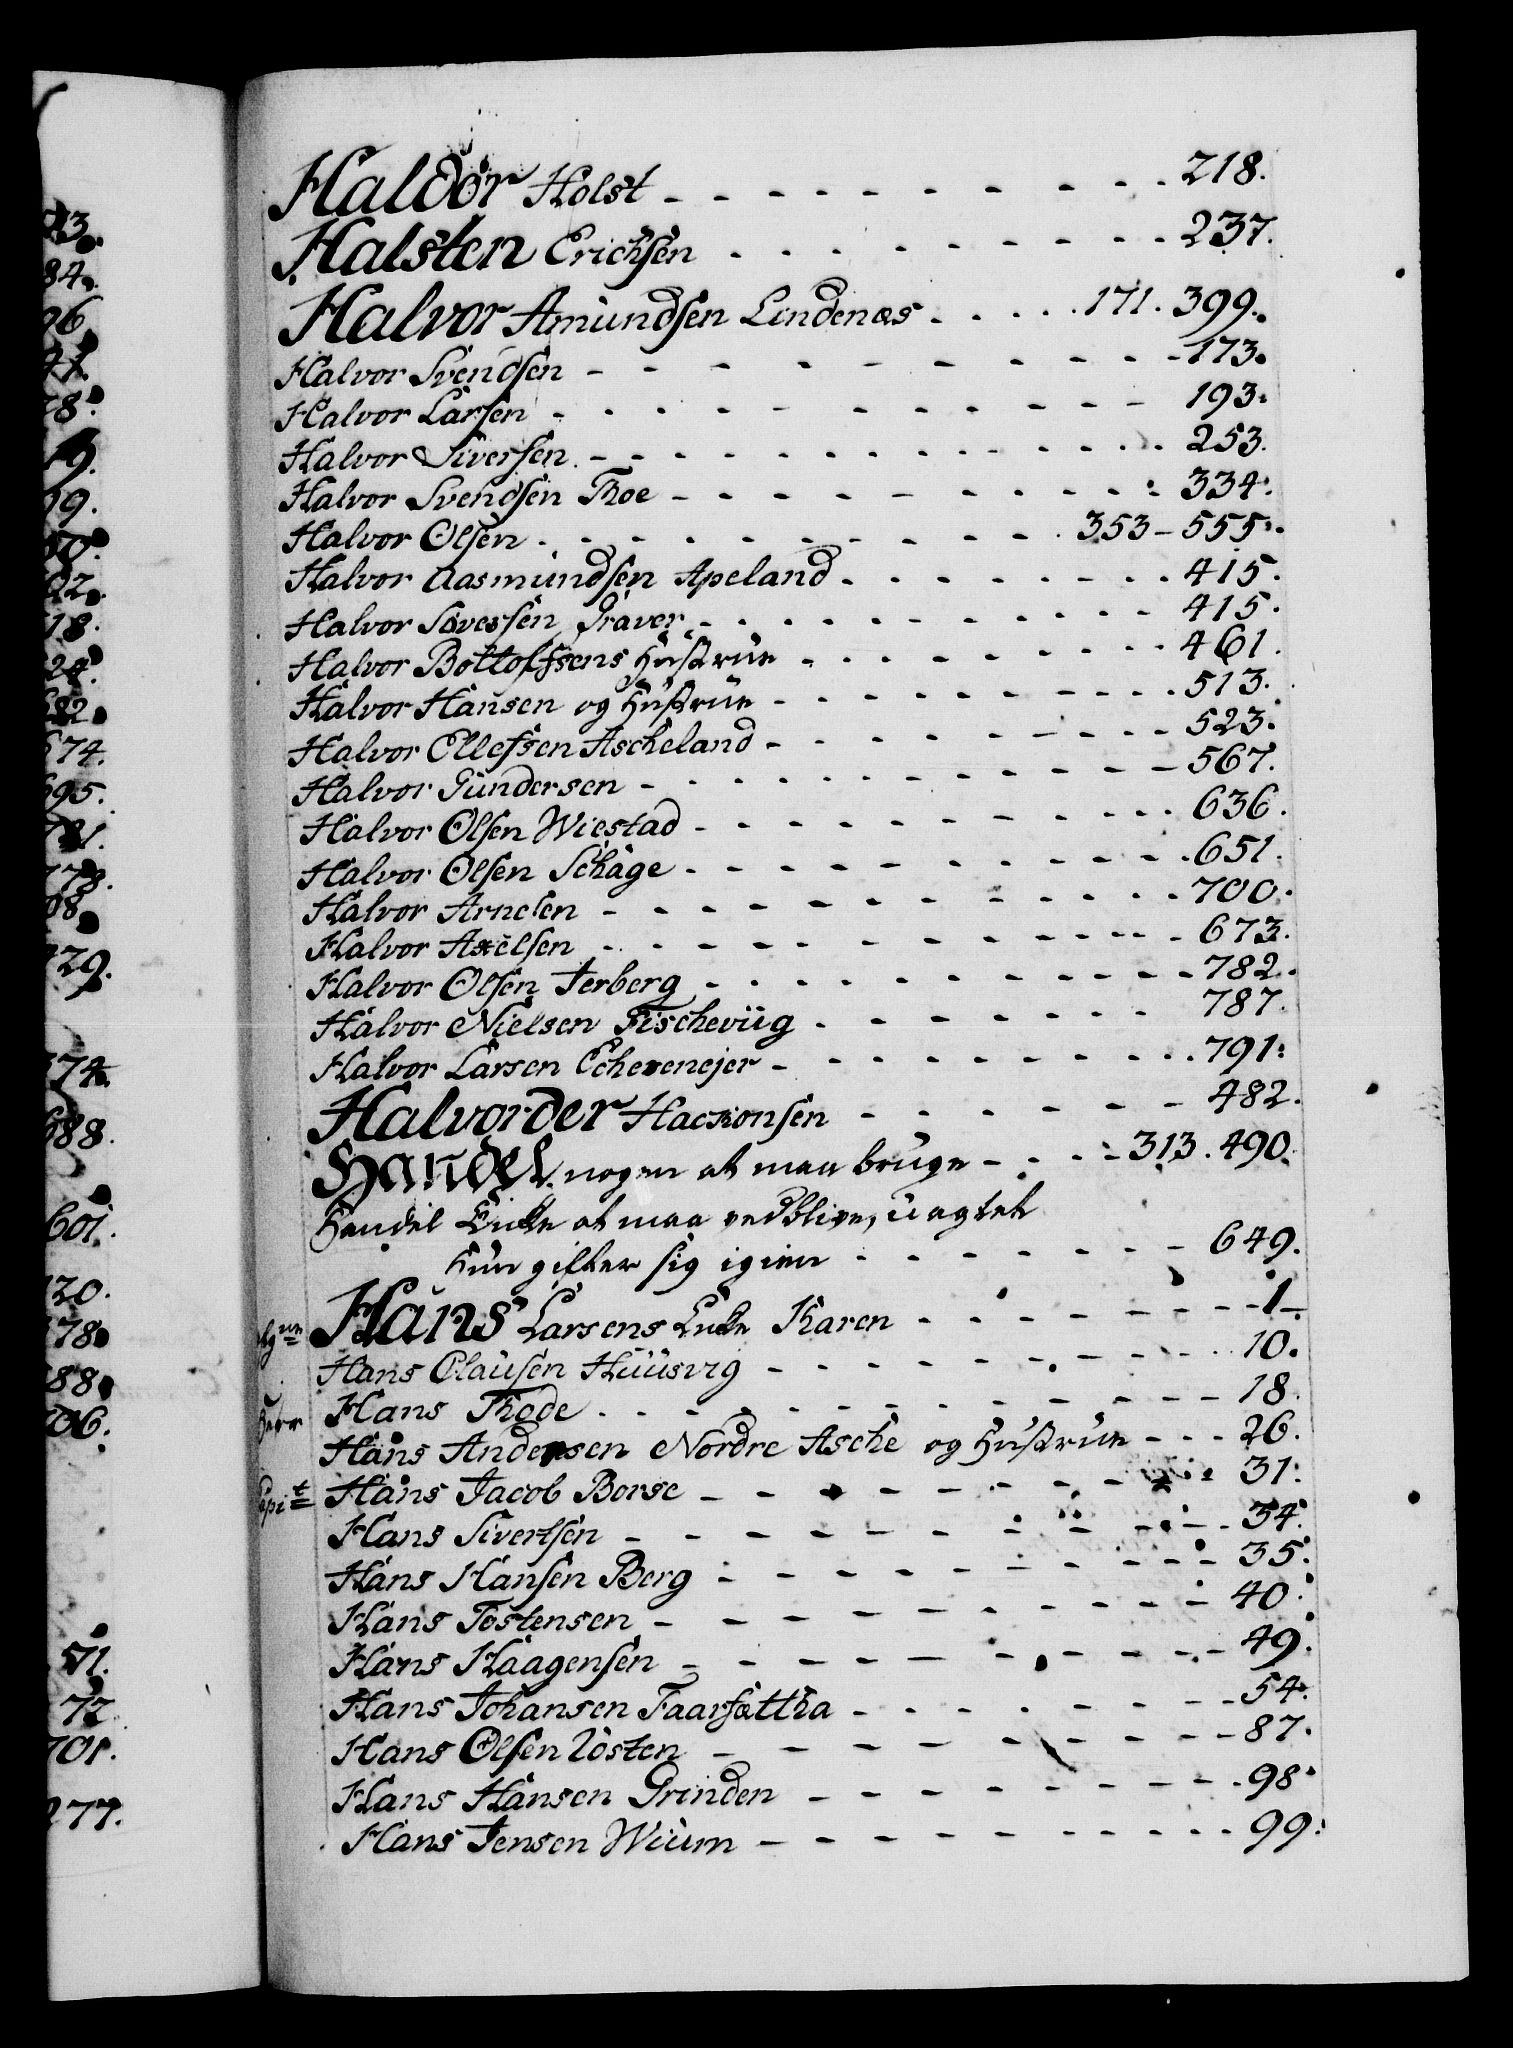 Haldor Holst - - - - - - - - - - 218.
Halsten Erichsen - - - - - - - - - 237.
Halvor Amundsen Lindenæs - - - - 171. 399.
Halvor Svendsen - - - - - - - - - - 173.
Halvor Larsen - - - - - - - - - - 193.
Halvor Siversen - - - - - - - - - - 253.
Halvor Svendsen Thoe - - - - - - - - 334.
Halvor Olsen - - - - - - - - - 353 - 555.
Halvor Aasmundsen Apeland - - - - - - - 415.
Halvor Siversen Græver - - - - - - - - 415.
Halvor Bottolfsens Hustrue - - - - - - - 461.
Halvor Hansen og Hustrue - - - - - - - - 513.
Halvor Ellefsen Ascheland - - - - - - - 523.
Halvor Gundersen - - - - - - - - - - 567.
Halvor Olsen Wiestad - - - - - - - - - 636.
Halvor Olsen Schage - - - - - - - - - 651.
Halvor Arnesen - - - - - - - - - - 700.
Halvor Axelsen - - - - - - - - - - 673.
Halvor Olsen Terberg - - - - - - - - - 782.
Halvor Nielsen Fischeviig - - - - - - - 787.
Halvor Larsen - - - - - - - - 791.
Halvorder Hactionsen - - - - - - - 482.
Handel, nogen at maa bruge - - - - 313. 490.
Handel Enke at maa vedblive, uagtet
hun gifter sig igien - - - - - - - 649.
Hans Larsens Enke Karen - - - - - - - 1
Hans Clausen Huusvig - - - - - - - - 10.
Herr Hans Thode - - - - - - - - - - 18.
Hans Andersen Nordre Asche og Hustrue - - - 26.
Capit Hans Jacob Borse - - - - - - - - 31.
Hans Sivertsen - - - - - - - - - - 34.
Hans Hansen Berg - - - - - - - - - 35.
Hans Tostensen - - - - - - - - - - 40.
Hans Haagensen - - - - - - - - - - 49.
Hans Johansen - - - - - - - 54.
Hans Olsen - - - - - - - - - 87.
Hans Hansen Grinden - - - - - - - - 98.
Hans Jensen Wium - - - - - - - - - 99.